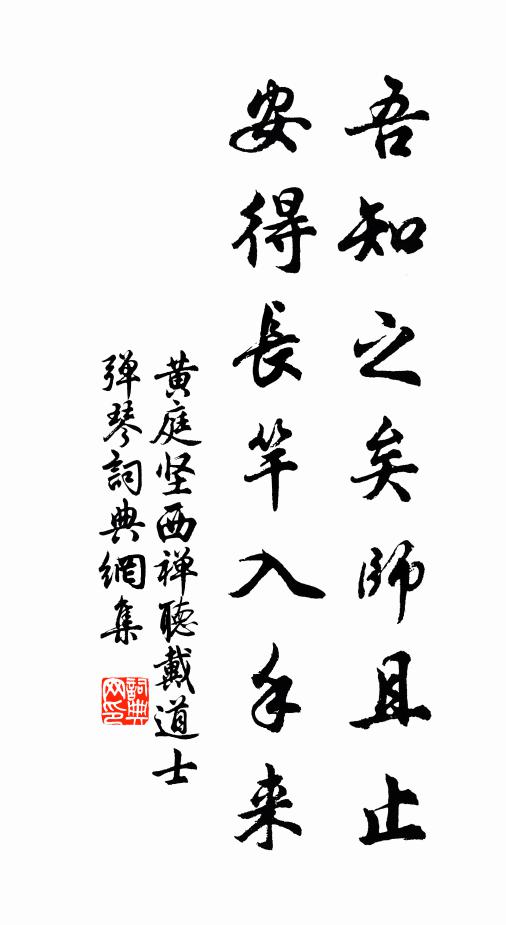 吾知之矣师且止
安得長竿入手来
黄庭坚西禅聽戴道士
弹琴詞典網集
詞典网印